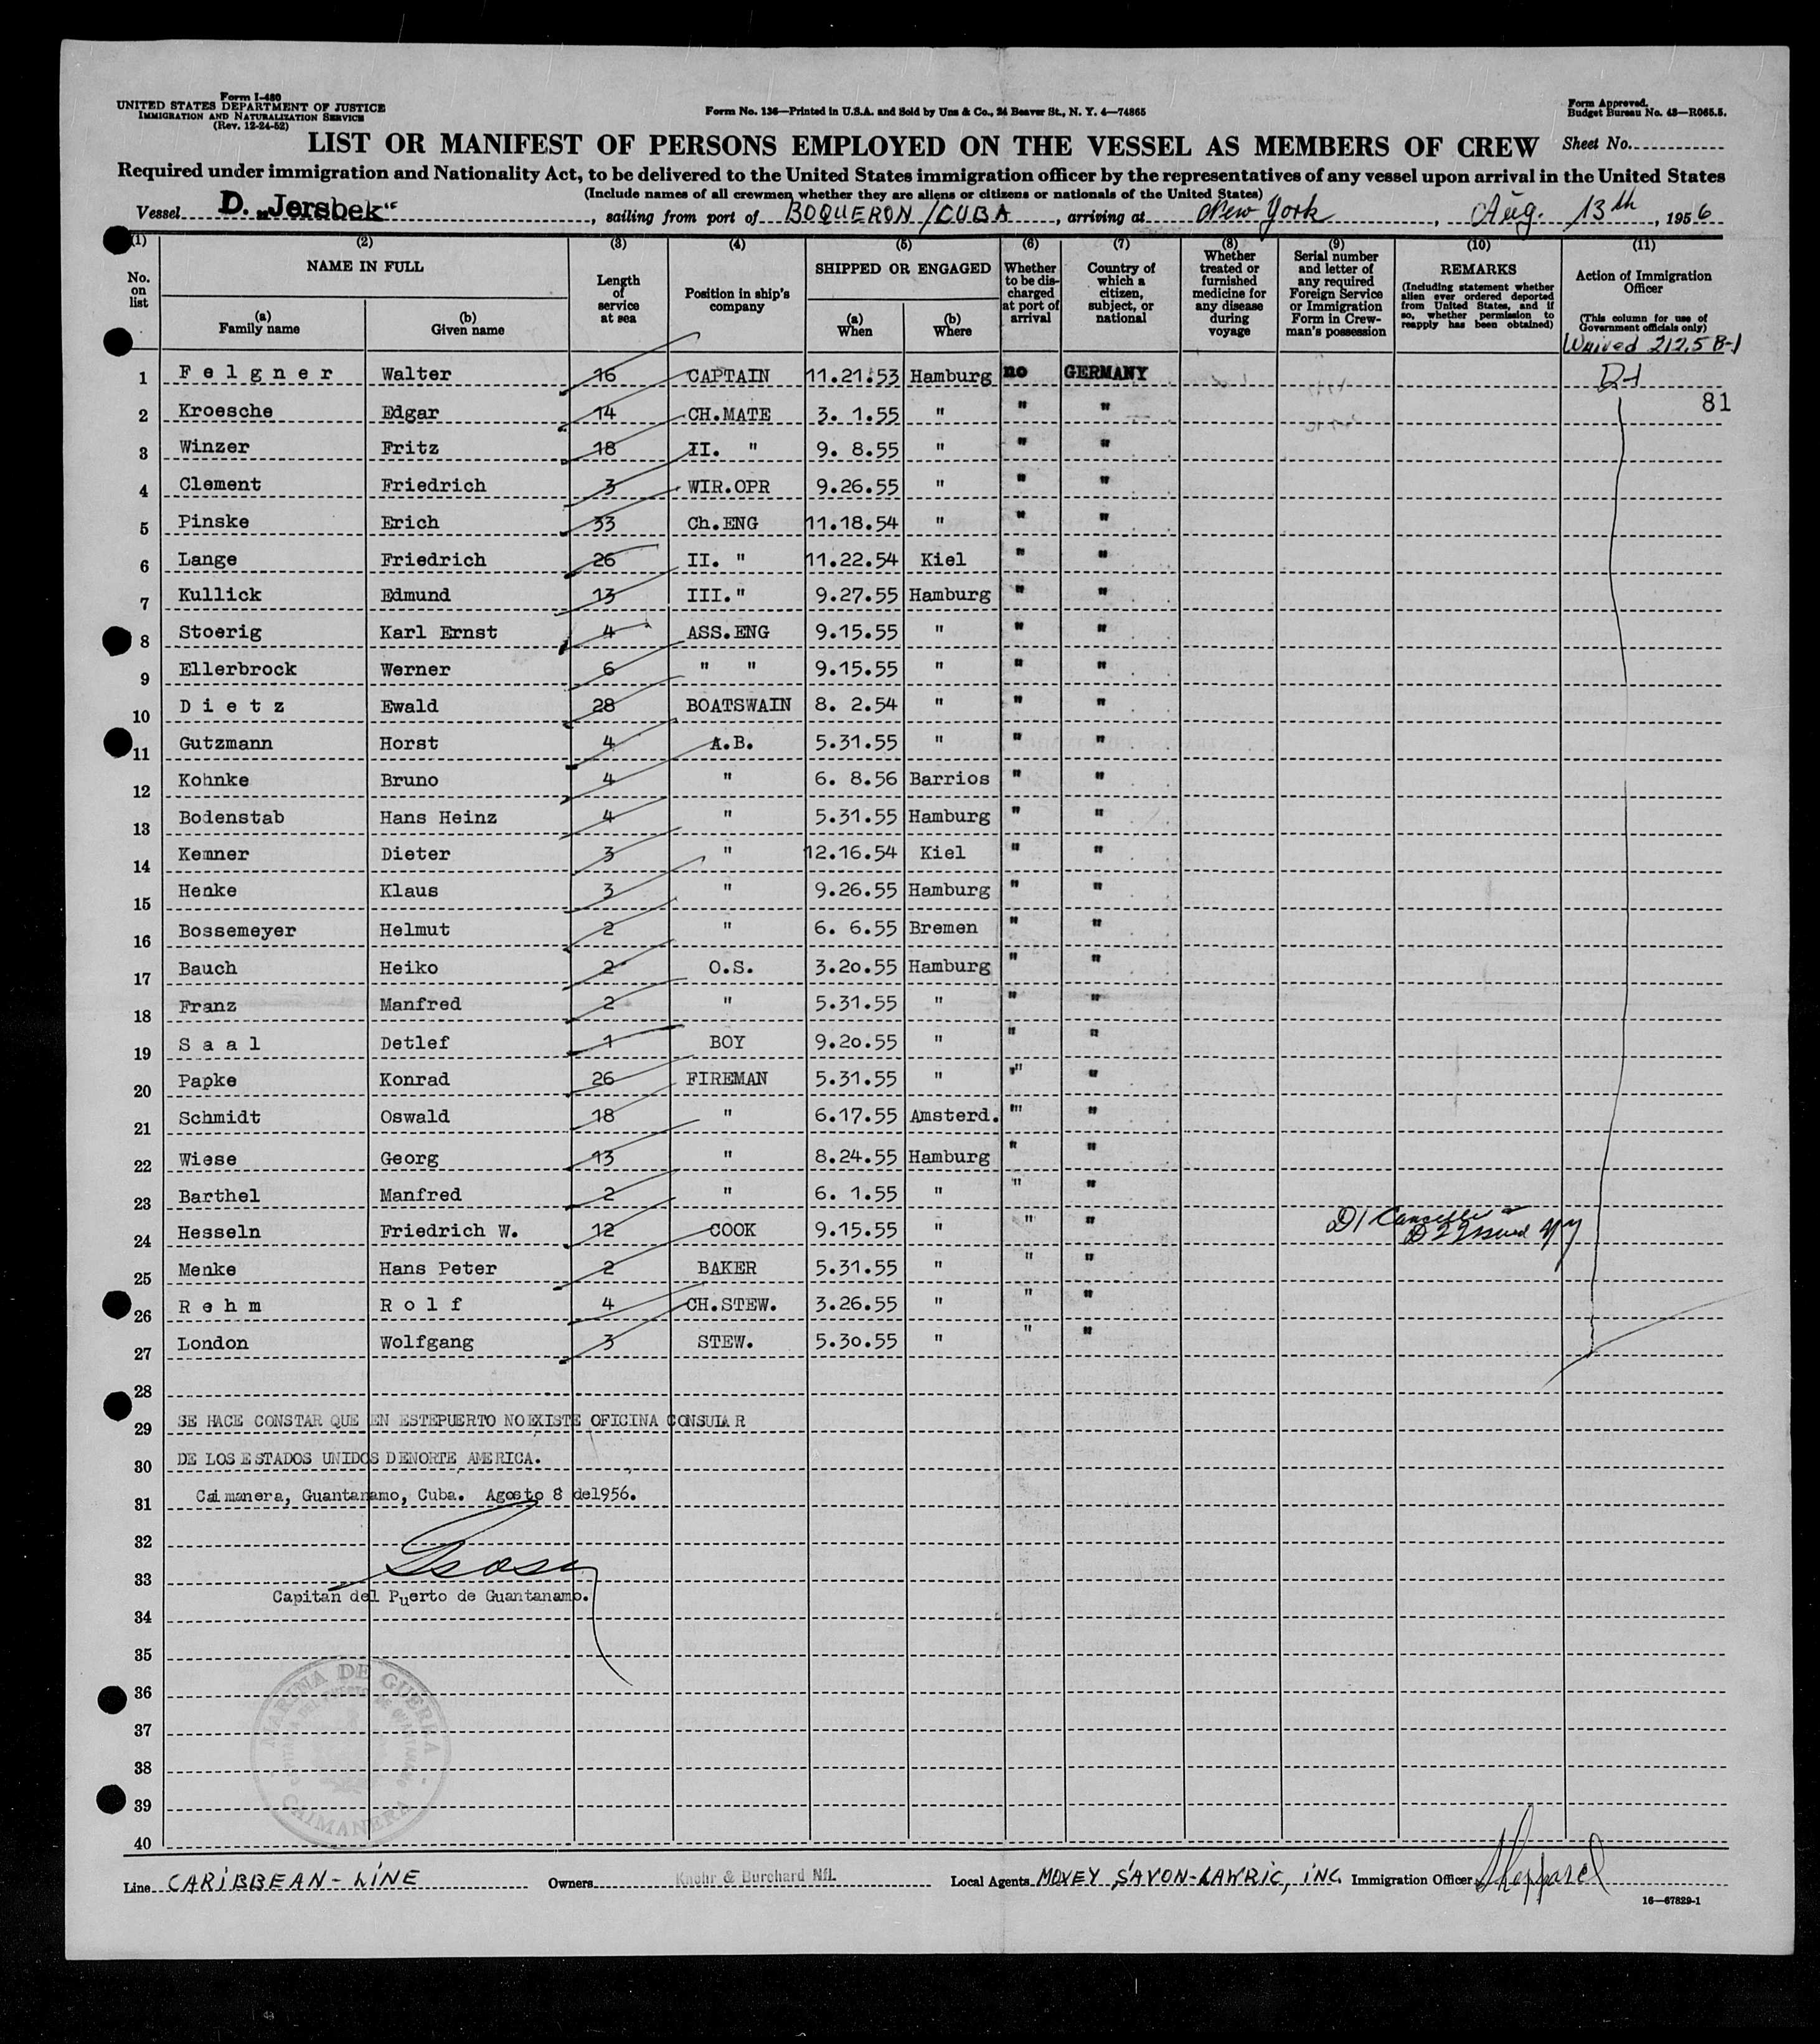 Form I-480
UNITED STATES DEPARTMENT OF JUSTICE
IMMIGRATION AND NATURALIZATION SERVICE
(Rev. 12-24-52)
Form No. 136—Printed in U.S.A. and Sold by Unz & Co., 24 Beaver St., N. Y. 4—74865
Form Approved.
Budget Bureau No. 43—R065.5.
LIST OR MANIFEST OF PERSONS EMPLOYED ON THE VESSEL AS MEMBERS OF CREW
Sheet No.
Required under immigration and Nationality Act, to be delivered to the United States immigration officer by the representatives of any vessel upon arrival in the United States
(Include names of all crewmen whether they are aliens or citizens or nationals of the United States)
Vessel D. "Jersbek", sailing from port of BOQUERON/CUBA, arriving at New York, Aug. 13th, 1956
(1) (2) (3) (4) (5) (6) (7) (8) (9) (10) (11)
No. on list
NAME IN FULL
(a) Family name
(b) Given name
Length of service at sea
Position in ship's company
SHIPPED OR ENGAGED
(a) When
(b) Where
Whether to be discharged at port of arrival
Country of which a citizen, subject, or national
Whether treated or furnished medicine for any disease during voyage
Serial number and letter of any required Foreign Service or Immigration Form in Crewman's possession
REMARKS
(Including statement whether alien ever ordered deported from United States, and if so, whether permission to reapply has been obtained)
Action of Immigration Officer
(This column for use of Government officials only)
Waived 212.5 B-1
1 Felgner Walter 16 CAPTAIN 11.21.53 Hamburg no GERMANY D-1
81
2 Kroesche Edgar 14 CH.MATE 3. 1.55 " " "
3 Winzer Fritz 18 II. " 9. 8.55 " " "
4 Clement Friedrich 3 WIR.OPR 9.26.55 " " "
5 Pinske Erich 33 Ch.ENG 11.18.54 " " "
6 Lange Friedrich 26 II. " 11.22.54 Kiel " "
7 Kullick Edmund 13 III." 9.27.55 Hamburg " "
8 Stoerig Karl Ernst 4 ASS.ENG 9.15.55 " " "
9 Ellerbrock Werner 6 " " 9.15.55 " " "
10 Dietz Ewald 28 BOATSWAIN 8. 2.54 " " "
11 Gutzmann Horst 4 A.B. 5.31.55 " " "
12 Kohnke Bruno 4 " 6. 8.56 Barrios " "
13 Bodenstab Hans Heinz 4 " 5.31.55 Hamburg " "
14 Kemner Dieter 3 " 12.16.54 Kiel " "
15 Henke Klaus 3 " 9.26.55 Hamburg " "
16 Bossemeyer Helmut 2 " 6. 6.55 Bremen " "
17 Bauch Heiko 2 O.S. 3.20.55 Hamburg " "
18 Franz Manfred 2 " 5.31.55 " " "
19 Saal Detlef 1 BOY 9.20.55 " " "
20 Papke Konrad 26 FIREMAN 5.31.55 " " "
21 Schmidt Oswald 18 " 6.17.55 Amsterd. " "
22 Wiese Georg 13 " 8.24.55 Hamburg " "
23 Barthel Manfred 2 " 6. 1.55 " " "
24 Hesseln Friedrich W. 12 COOK 9.15.55 " " " D1 Cancelled D2 Issued NY
25 Menke Hans Peter 2 BAKER 5.31.55 " " "
26 Rehm Rolf 4 CH.STEW. 3.26.55 " " "
27 London Wolfgang 3 STEW. 5.30.55 " " "
28
29 SE HACE CONSTAR QUE EN ESTEPUERTO NOEXISTE OFICINA CONSULAR
30 DE LOS ESTADOS UNIDOS DENORTE AMERICA.
31 Caimanera, Guantanamo, Cuba. Agosto 8 de1956.
32
33
Capitan del Puerto de Guantanamo.
34
35
36
37
38
39
40
MARINA DE GUERRA
CAPITANIA DEL PUERTO DE GUANTANAMO
CAIMANERA
Line CARIBBEAN-LINE Owners Knohr & Burchard Nfl. Local Agents Immigration Officer Sheppard
16—67829-1